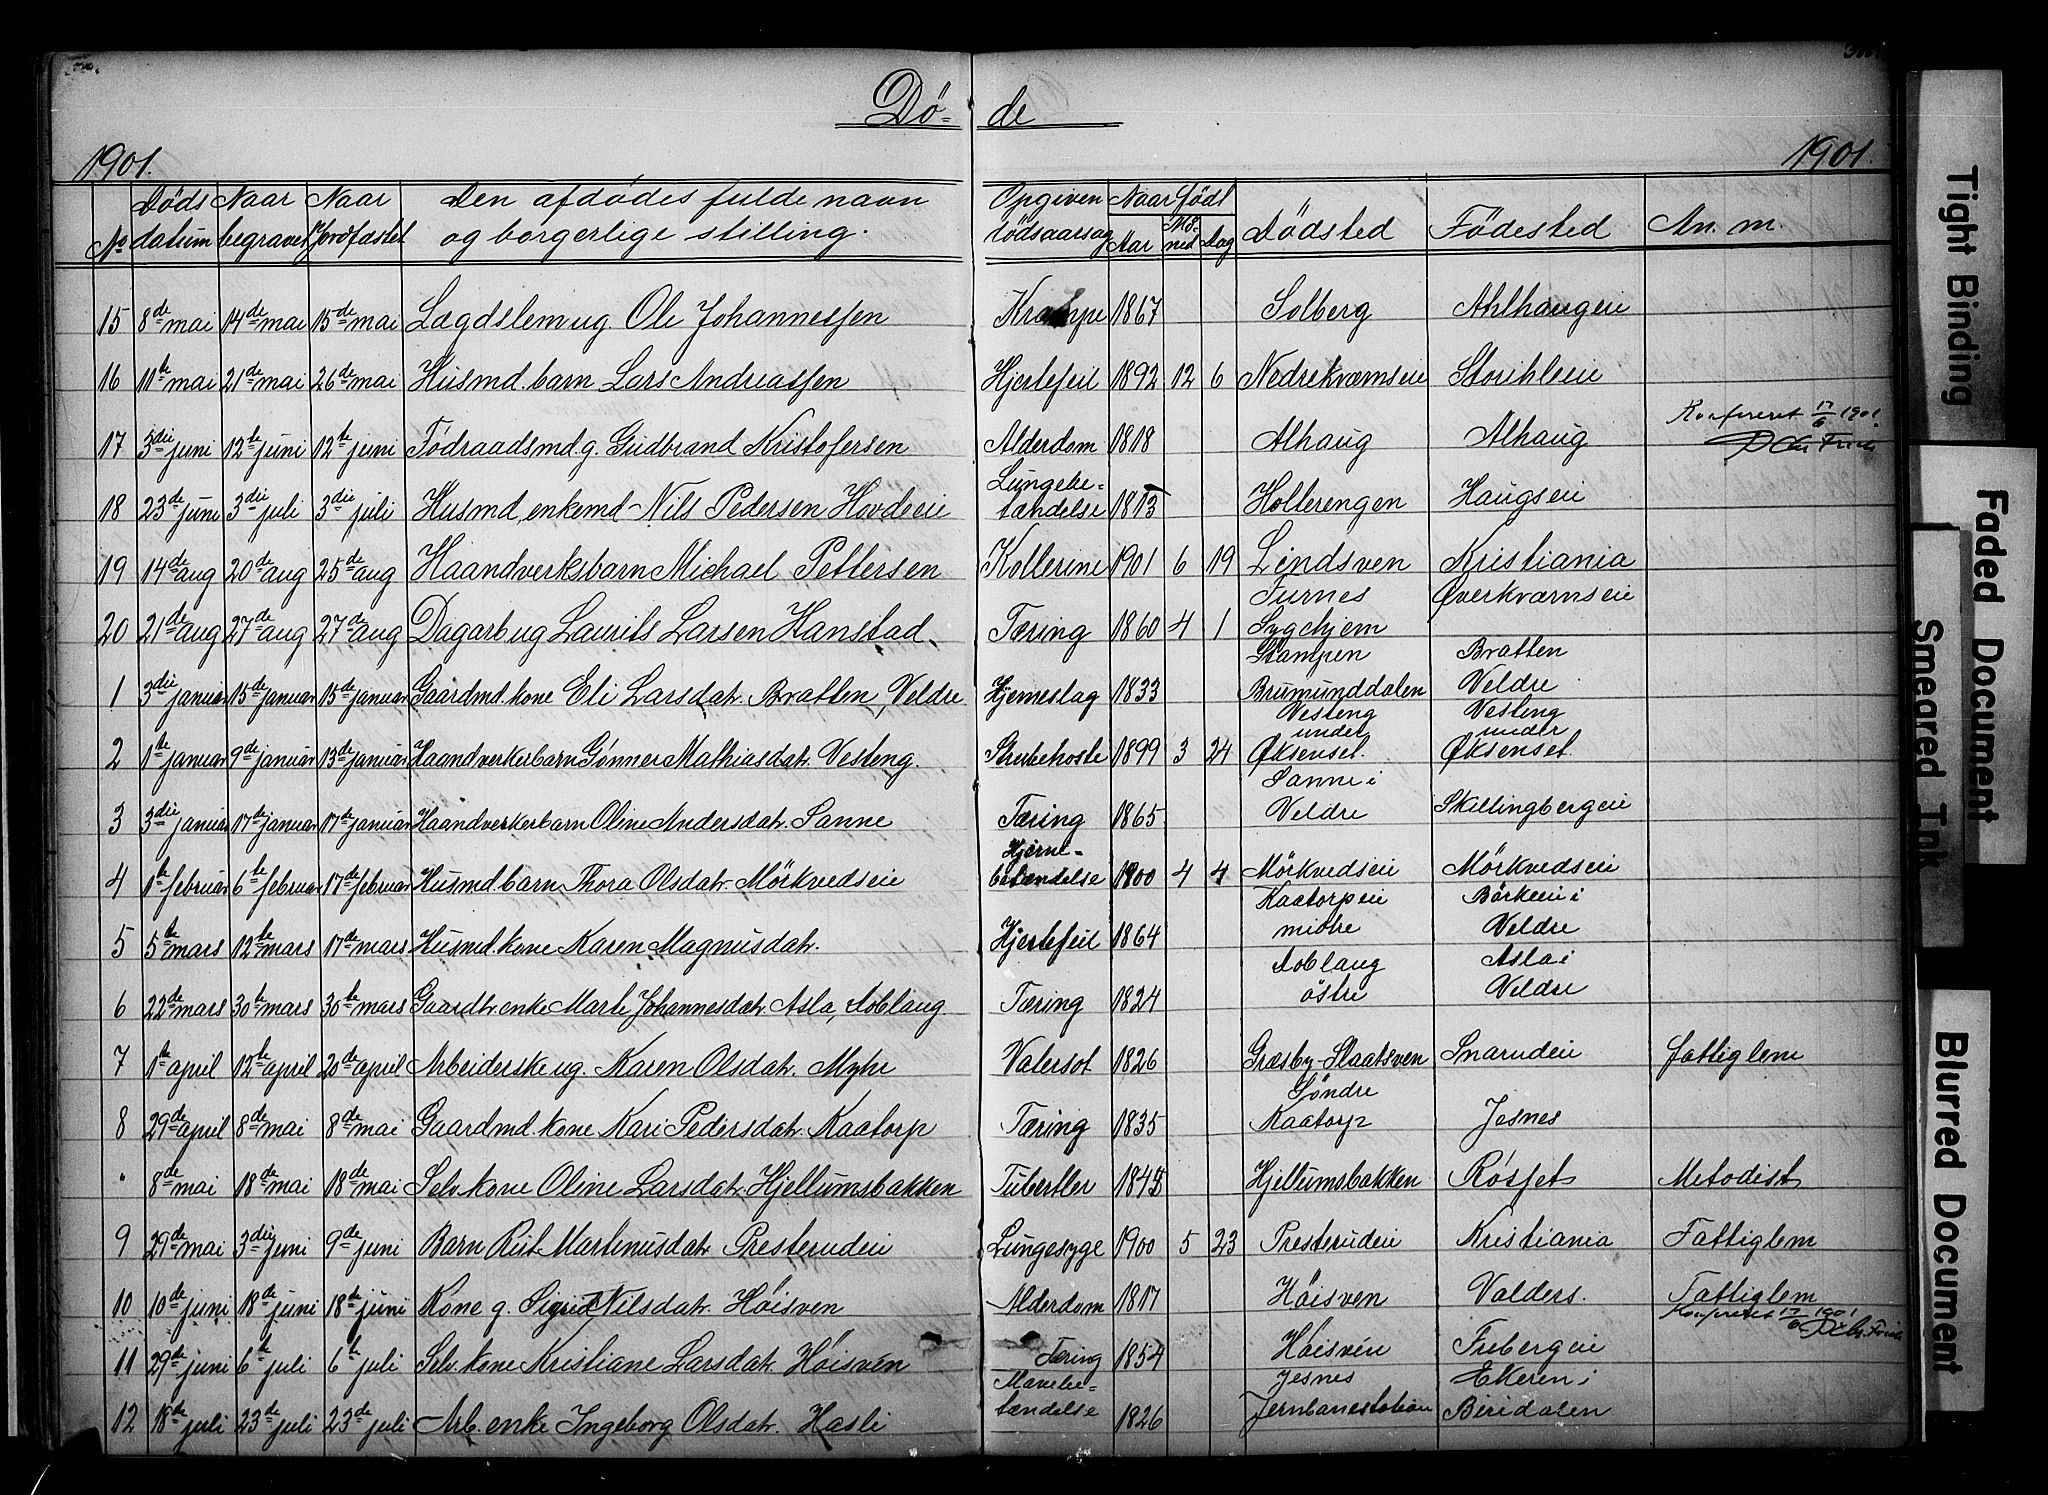 Dö- de
1901. 1901.
No Döds datum Naar begravet Naar jordfæstet Den afdödes fulde navn og borgerlige stilling. Opgiven dödsaarsag Naar födt Aar Maaned Dag Dödsted Födested An. m.
15 8de mai 14de mai 15de mai Lægdslem ug. Ole Johannessen Krampe 1867 Solberg Ahlhaugeie
16 11te mai 21de mai 26de mai Husmd. barn Lars Andreassen Hjertefeil 1892 12 6 Nedrekværnseie Storihleeie
17 3die juni 12te juni 12te juni Födraadsmd. g. Gudbrand Kristofersen Alderdom 1818 Alhaug Alhaug Konfereret 17/6 1901.
18 23de juni 3die juli 3die juli Husmd, enkemd Nils Pedersen Hovdeeie Lungebe-tændelse 1813 Holterengen Haugseie
19 14de aug 20de aug 25de aug Haandverksbarn Michael Pettersen Kollerine 1901 6 19 Lindsven Kristiania
20 21de aug 27de aug 27de aug Dagarb ug Laurits Larsen Hanstad. Tæring 1860 4 1 Furnes Sygehjem Øverkværnseie
1 3die januar 15de januar 15de januar Gaardmd. kone Eli Larsdatr. Bratten, Veldre Hjerneslag 1833 Stampen Brumunddalen Bratten Veldre
2 1te januar 9de januar 13de januar Haandverkerbarn Gønner Mathiasdatr. Vesteng. Strubehoste 1899 3 24 Vesteng under Øksenset. Vesteng under Øksenset.
3 3die januar 17de januar 17de januar Haandverkerbarn Oline Andersdatr. Sanne Tæring 1865 Sanne i Veldre Skillingbergeie
4 1te februar 6te februar 17de februar Husmd barn Thora Olsdatr. Mörkvedseie Hjerne-betændelse 1900 4 4 Mörkvedseie Mörkvedseie
5 5te mars 12te mars 17de mars Husmd. kone Karen Magnusdatr. Hjertefeil 1864 Kaatorpeie midtre Börkeeie i Veldre
6 22de mars 30te mars 30te mars Gaardbr. enke Marte Johannesdatr. Asla, Doblaug. Tæring 1824 Doblaug östre Asla i Veldre
7 1te april 12te april 20de april Arbeiderske ug. Karen Olsdatr. Myhr Vatersot 1826 Græsby-Slaatsven Snarudeie fattiglem
8 29de april 8de mai 8de mai Gaardmd. kone Kari Pedersdatr. Kaatorp Tæring 1835 Söndre Kaatorp Jesnes
" 8de mai 18de mai 18de mai Selv. kone Oline Larsdatr. Hjellumsbakken Tubertler 1845 Hjellumsbakken Røsset Metodist
9 29de mai 3die juni 9de juni Barn Rut Martinusdatr Presterudeie Lungesyge 1900 5 23 Presterudeie Kristiania Fattiglem
10 10de juni 18de juni 18de juni Kone g. Sigrid Nilsdatr. Höisven Alderdom 1817 Höisven Valders. Fattiglem
Konfereret 17/6 1901
11 29de juni 6te juli 6te juli Selv. kone Kristiane Larsdatr. Höisven Tæring 1854 Höisven Frebergeie
12 18de juli 23de juli 23de juli Arb. enke Ingeborg Olsdatr. Hasli Mavebe-tændelse 1826 Jesnes Jernbanestation Ekeren i Biridalen
Tight Binding
Faded Document
Smeared Ink
Blurred Document